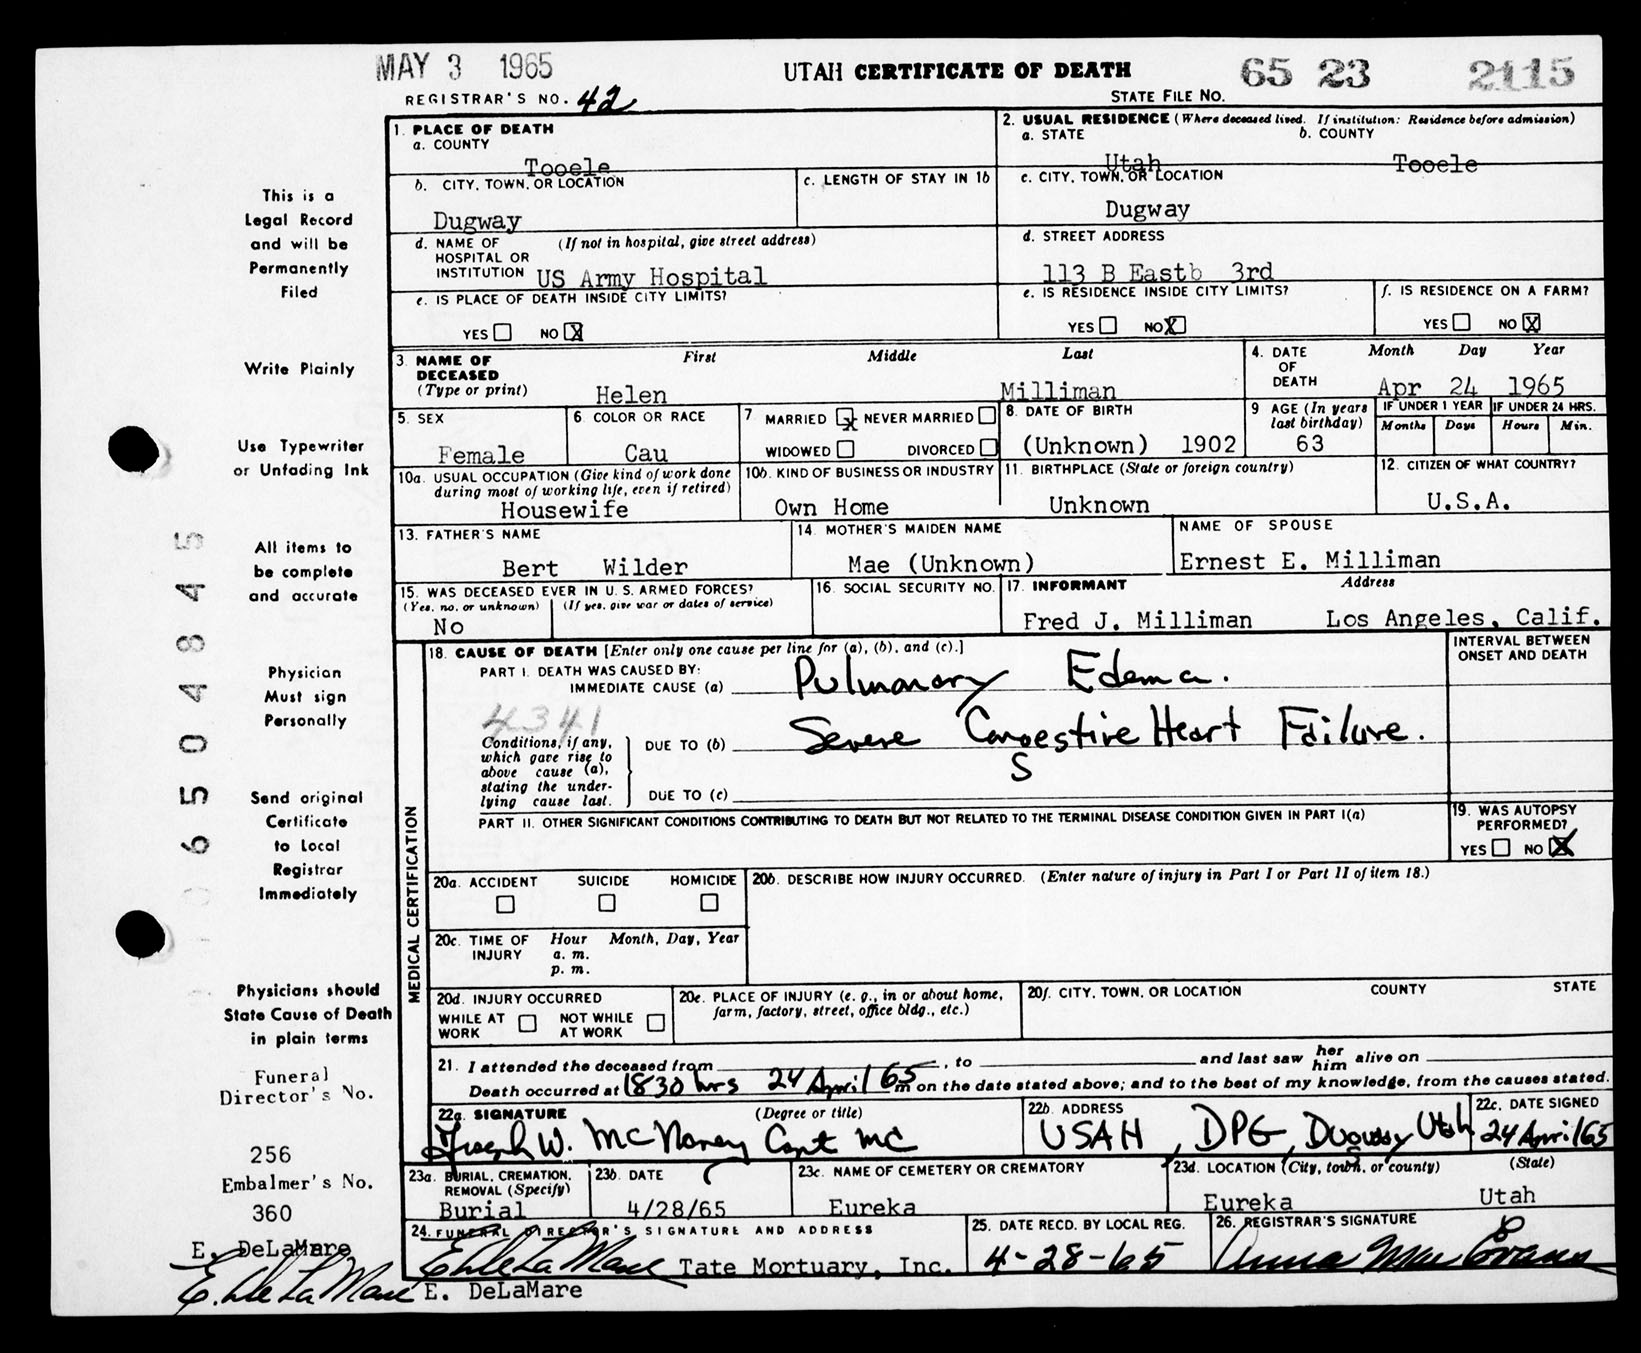 MAY 3 1965
UTAH CERTIFICATE OF DEATH
65 23 2115
REGISTRAR'S NO. 42
STATE FILE NO.
1. PLACE OF DEATH
a. COUNTY
Tooele
2. USUAL RESIDENCE (Where deceased lived. If institution: Residence before admission)
a. STATE b. COUNTY
Utah Tooele
b. CITY, TOWN, OR LOCATION
Dugway
c. LENGTH OF STAY IN 1b
c. CITY, TOWN, OR LOCATION
Dugway
d. NAME OF (If not in hospital, give street address)
HOSPITAL OR
INSTITUTION US Army Hospital
d. STREET ADDRESS
113 B Eastb 3rd
e. IS PLACE OF DEATH INSIDE CITY LIMITS?
YES NO X
e. IS RESIDENCE INSIDE CITY LIMITS?
YES NO X
f. IS RESIDENCE ON A FARM?
YES NO X
3. NAME OF First Middle Last
DECEASED
(Type or print) Helen Milliman
4. DATE Month Day Year
OF
DEATH Apr 24 1965
5. SEX
Female
6 COLOR OR RACE
Cau
7 MARRIED X NEVER MARRIED
WIDOWED DIVORCED
8. DATE OF BIRTH
(Unknown) 1902
9 AGE (In years
last birthday)
63
IF UNDER 1 YEAR IF UNDER 24 HRS.
Months Days Hours Min.
10a. USUAL OCCUPATION (Give kind of work done
during most of working life, even if retired)
Housewife
10b. KIND OF BUSINESS OR INDUSTRY
Own Home
11. BIRTHPLACE (State or foreign country)
Unknown
12. CITIZEN OF WHAT COUNTRY?
U.S.A.
13. FATHER'S NAME
Bert Wilder
14. MOTHER'S MAIDEN NAME
Mae (Unknown)
NAME OF SPOUSE
Ernest E. Milliman
15. WAS DECEASED EVER IN U. S. ARMED FORCES?
(Yes, no, or unknown) (If yes, give war or dates of service)
No
16. SOCIAL SECURITY NO.
17. INFORMANT Address
Fred J. Milliman Los Angeles, Calif.
MEDICAL CERTIFICATION
18. CAUSE OF DEATH [Enter only one cause per line for (a), (b), and (c).]
INTERVAL BETWEEN
ONSET AND DEATH
PART I. DEATH WAS CAUSED BY:
IMMEDIATE CAUSE (a) Pulmonary Edema.
4341
Conditions, if any,
which gave rise to
above cause (a),
stating the under-
lying cause last.
DUE TO (b) Severe Congestive Heart Failure.
DUE TO (c)
PART II. OTHER SIGNIFICANT CONDITIONS CONTRIBUTING TO DEATH BUT NOT RELATED TO THE TERMINAL DISEASE CONDITION GIVEN IN PART I(a)
19. WAS AUTOPSY
PERFORMED?
YES NO X
20a. ACCIDENT SUICIDE HOMICIDE
20b. DESCRIBE HOW INJURY OCCURRED. (Enter nature of injury in Part I or Part II of item 18.)
20c. TIME OF Hour Month, Day, Year
INJURY a. m.
p. m.
20d. INJURY OCCURRED
WHILE AT NOT WHILE
WORK AT WORK
20e. PLACE OF INJURY (e. g., in or about home,
farm, factory, street, office bldg., etc.)
20f. CITY, TOWN, OR LOCATION COUNTY STATE
21. I attended the deceased from , to and last saw her him alive on
Death occurred at 1830 hrs 24 April 65 m on the date stated above; and to the best of my knowledge, from the causes stated.
22a. SIGNATURE (Degree or title)
Joseph W. McNaney Capt MC
22b. ADDRESS
USAH, DPG, Dugway Utah
22c. DATE SIGNED
24 April 65
23a. BURIAL, CREMATION,
REMOVAL (Specify)
Burial
23b. DATE
4/28/65
23c. NAME OF CEMETERY OR CREMATORY
Eureka
23d. LOCATION (City, town, or county) (State)
Eureka Utah
24. FUNERAL DIRECTOR'S SIGNATURE AND ADDRESS
E. DeLaMare Tate Mortuary, Inc.
E. DeLaMare
25. DATE RECD. BY LOCAL REG.
4-28-65
26. REGISTRAR'S SIGNATURE
Anna Mae Evans
This is a
Legal Record
and will be
Permanently
Filed
Write Plainly
Use Typewriter
or Unfading Ink
All items to
be complete
and accurate
Physician
Must sign
Personally
Send original
Certificate
to Local
Registrar
Immediately
Physicians should
State Cause of Death
in plain terms
Funeral
Director's No.
256
Embalmer's No.
360
E. DeLaMare
E. DeLaMare
6504845